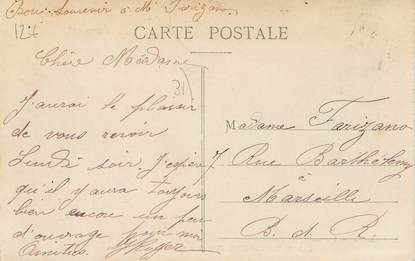 Bon Souvenir à Mr Farizano
12€
CARTE POSTALE
Chère Madame
31
J'aurai le plaisir
de vous revoir
Lundi soir J'espère
qu'il y aura toujours
bien encou un peu
d'ouvrage pour moi
Amitiés
Madame Farizano
7 Rue Barthélemy
à
Marseille
B. d. R.